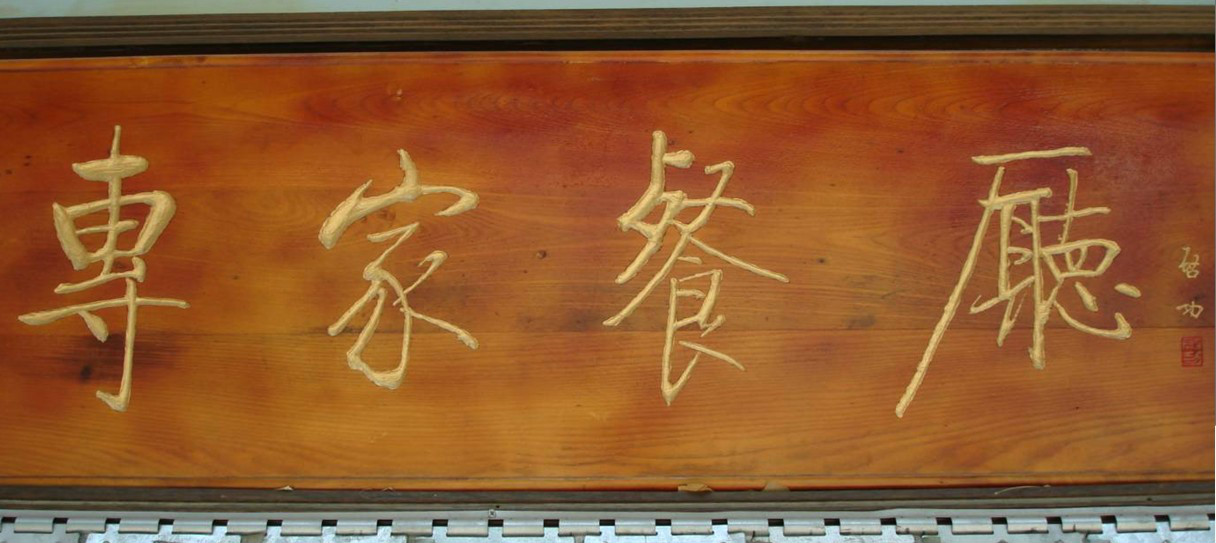 專家餐廳
啓功